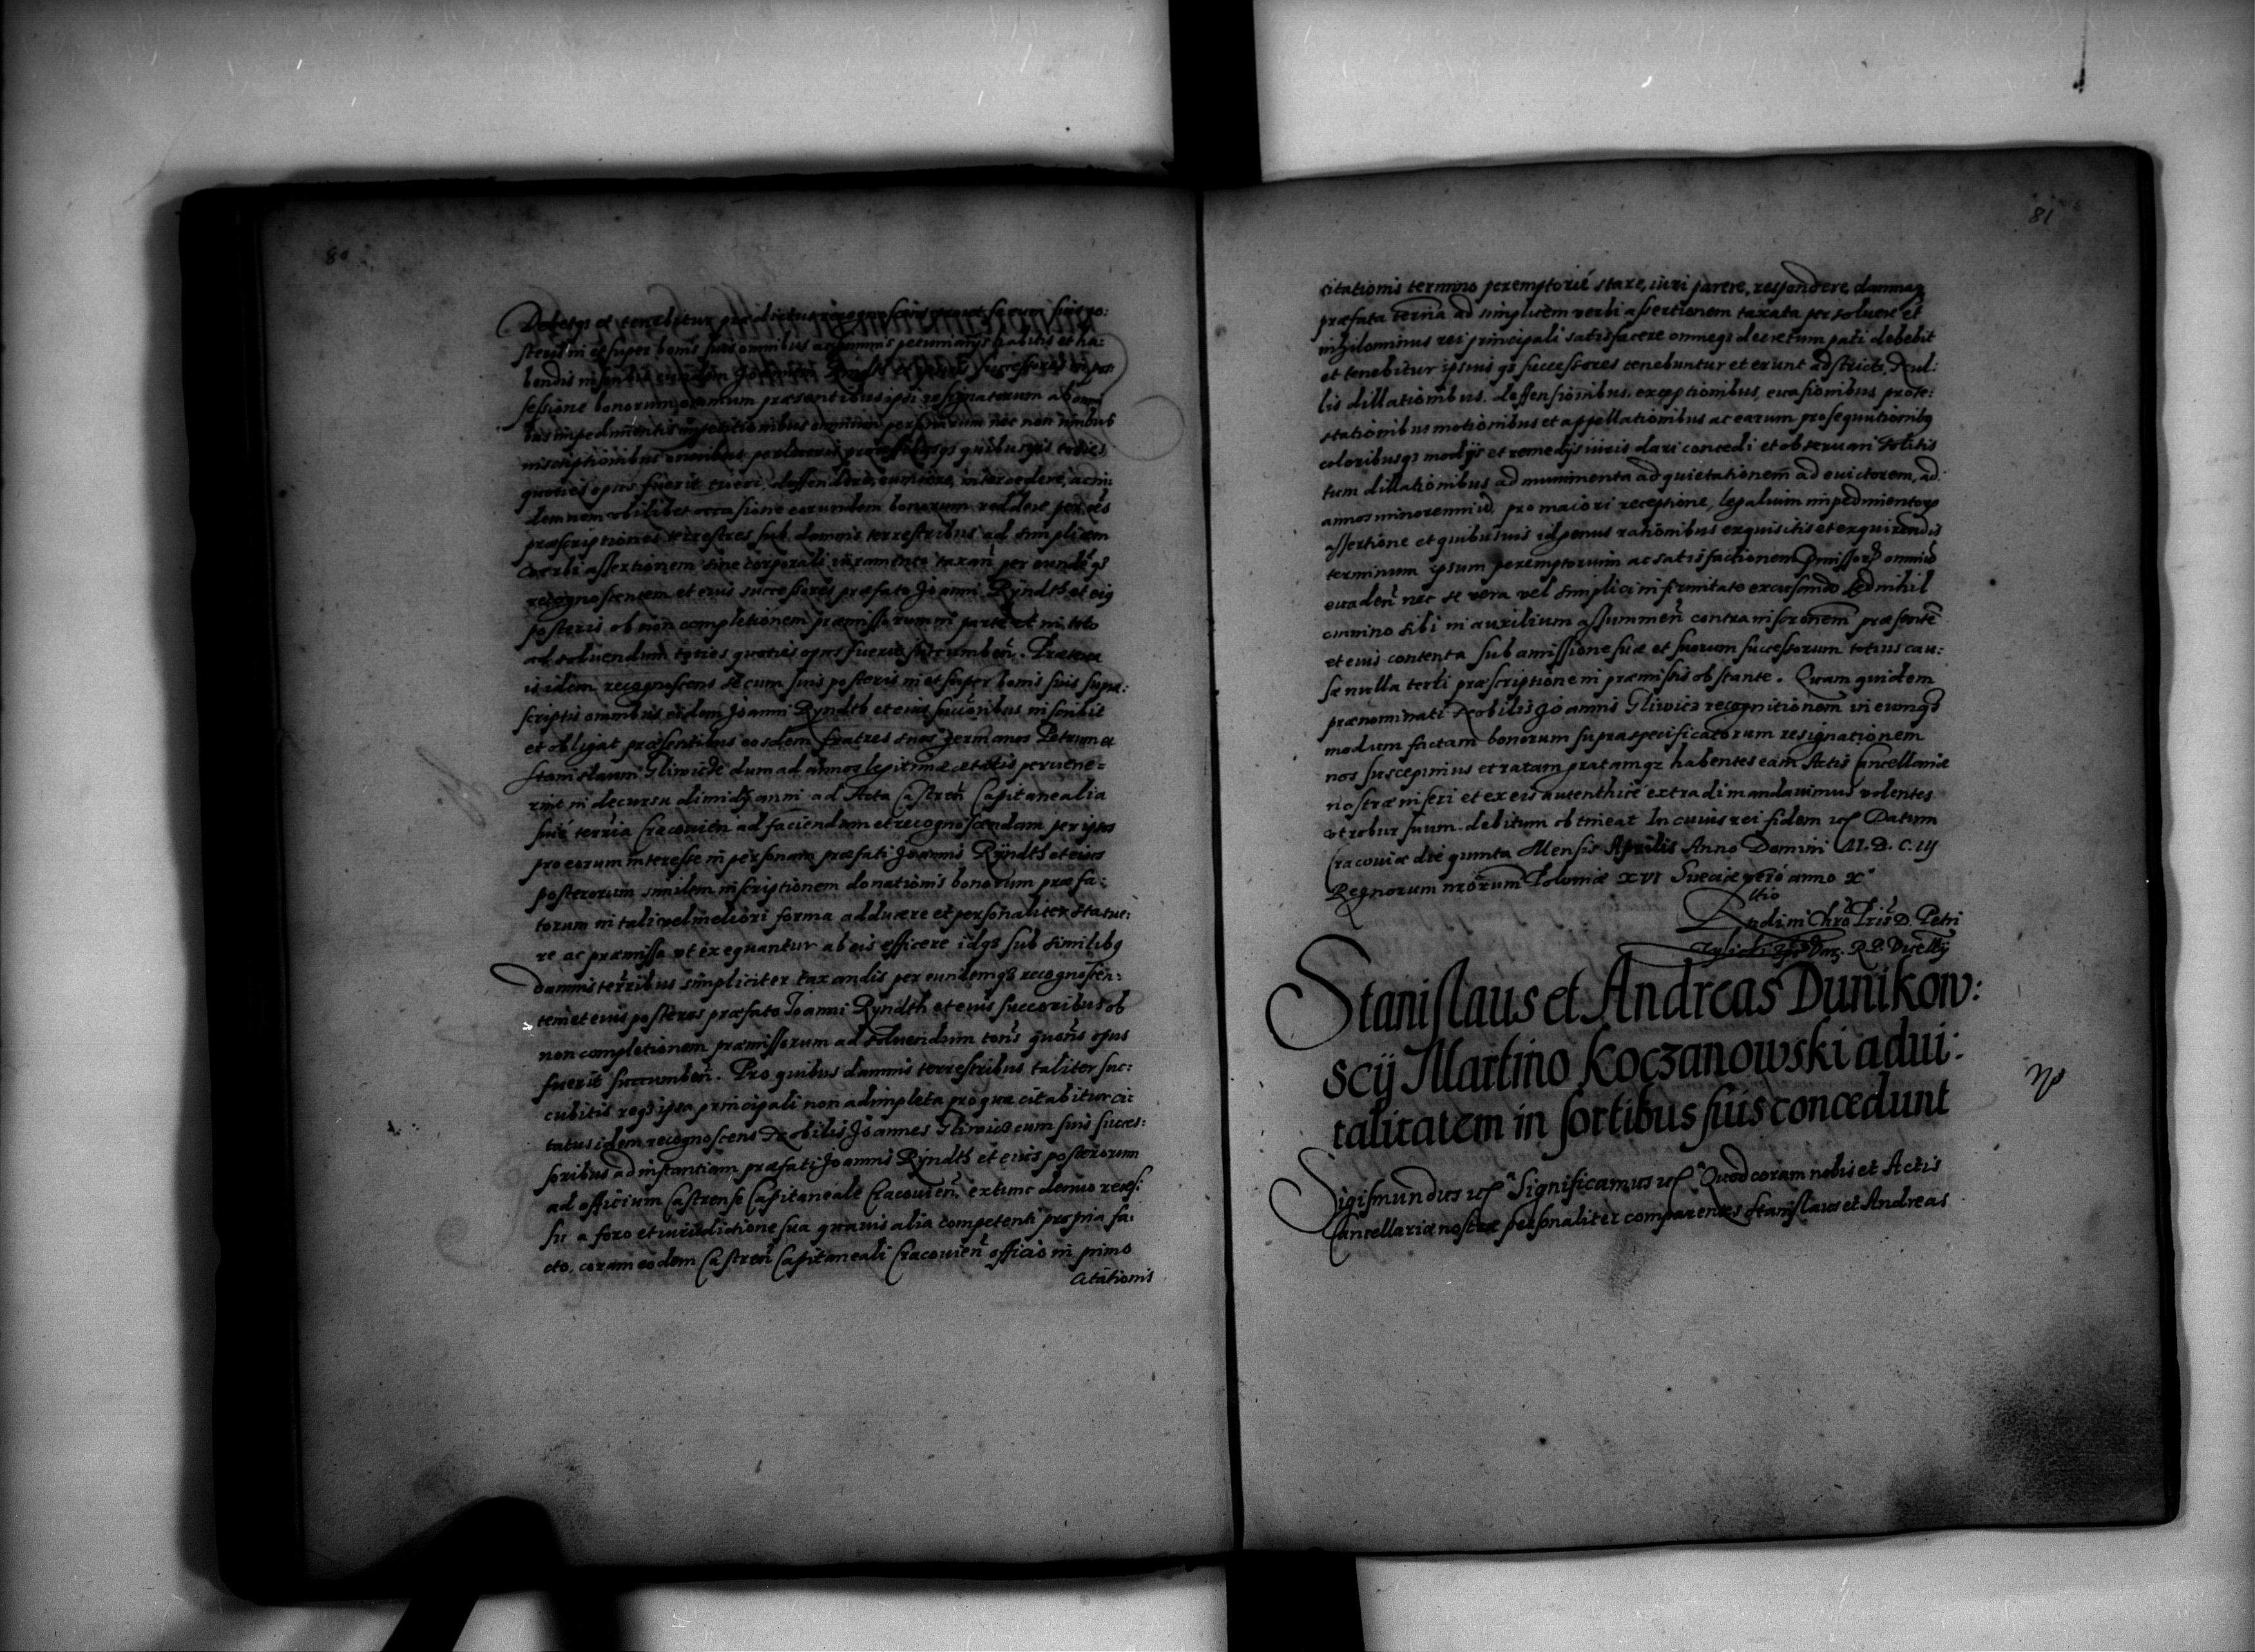 80
Debetqs et tenebitur prædictus recognoscens prout se cum suis po:
steris in et super bonis suis omnibus ac summis pecuniarijs habitis et ha:
bendis inscribit eundem Joannem Ryndth et ipsius successores in pos:
sessione bonorum omnium præsentibus ipsi resignatorum ab omni
bus impedimentis omnium personarum nec non omnibus
inscriptionibus quibusvis toties
quoties opus fuerit tueri, deffendere, evincere, intercedere, ac in:
demnem obilibet occasione eorundem bonorum reddere per oēs
præscriptiones terrestres sub damnis terrestribus ad simplicem
verbi assertionem sine corporali iuramento taxañ per eundēqʒ
recognoscentem et eius successores præfato Joanni Ryndth et eiꝯ
posteris ob non completionem præmissorum in parte et in toto
ad soluendum toties quoties opus fuerit succumbeñ. Præterea
is idem recognoscens se cum suis posteris in et super bonis suis supra:
scriptis omnibus eidem Joanni Ryndth et eius succoribus inscribit
et obligat præsentibus eosdem fratres suos germanos Petrum et
Stanislaum Gliwicʒ dum ad annos legitimæ ætatis pervene=
rint in decursu dimidij anni ad Acta Castreñ Capitanealia
sivé terria Cracovieñ ad faciendam et recognoscendam per ipsos
pro eorum interesse in personam præfati Joannis Ryndth et eius
posterorum similem inscriptionem donationis bonorum præfa:
torum in tali vel meliori forma adducere et personaliter statue:
re ac præmissa vt exequantur ab eis efficere idqʒ sub similibꝯ
damnis terribus simpliciter taxandis per eundemqʒ recognoscen:
tem et eius posteros præfato Joanni Ryndth et eius succoribus ob
non completionem præmissorum ad soluendum totiēs quotiēs opus
fuerit succumbeñ. Pro quibus damnis terrestribus taliter suc:
cubitis reqʒ ipsa principali non adimpleta pro qua citabitur ci:
tatus idem recognoscens Nobilis Joannes Gliwicʒ cum suis succes:
soribus ad instantiam præfati Joannis Ryndth et eius posterorum
ad officium Castrense Capitaneale Cracovieñ extunc demo reces:
su a foro et iurisdictione sua quavis alia competenti propria fa:
cto, coram eodem Castreñ Capitaneali Cracovieñ officio in primo
Citationis
81
citationis termino peremptoriè stare, iuri parere, respondere, damnaqʒ
præfata terria ad simplicem verbi assertionem taxata persoluere et
nihilominus rei principali satisfacere omneqʒ decretum pati debebit
et tenebitur ipsius qʒ successores tenebuntur et erunt adstricti, Nul:
lis dillationibus, deffensionibus, exceptionibus, evasionibus, prote:
stationibus motionibus et appellationibus ac earum prosequutionibꝯ
coloribusqʒ modijs et remedijs iuris dari concedi et observari solitis
tum dillationibus ad munimenta ad quietationem ad evictorem, ad
annos minorennid. pro maiori receptione, legalium impedimentorꝝ
assertione et quibusuis id genus rationibus exquisitis et exquirendis
terminum ipsum peremptorium ac satisfactionem pmissorꝝ omniū
evadeñ nec se vera vel simplici infirmitate excusando sed nihil
omnino sibi in auxilium assummeñ contra inscronem præsentē
et eius contenta sub amissione suæ et suorum successorum totius cau:
sæ nulla terri præscriptione in præmissis obstante. Quam quidem
prænominati Nobilis Joannis Gliwicʒ recognitionem in eumqʒ
modum factam bonorum supraspecificatorum resignationem
nos suscepimus et ratam gratamqʒ habentes eam Actis Cancellariæ
nostræ inseri et ex eis autenthicè extradi mandavimus volentes
vt robur suum debitum obtineat In cuius rei fidem etc Datum
Cracoviæ die quinta Mensis Aprilis Anno Domini M. D. C. iij
Regnorum nrorum Poloniæ XVI Sueciæ verò anno X°
Rltio
Rndi in Chro Pris D. Petri
R. P. Vicecllrij
Stanislaus et Andreas Dunikow:
scij Martino Koczanowski adui:
talitatem in sortibus suis concedunt
Sigismundus etc Significamus etc Quod coram nobis et Actis
Cancellariæ nostræ personaliter comparentes Stanislaus et Andreas